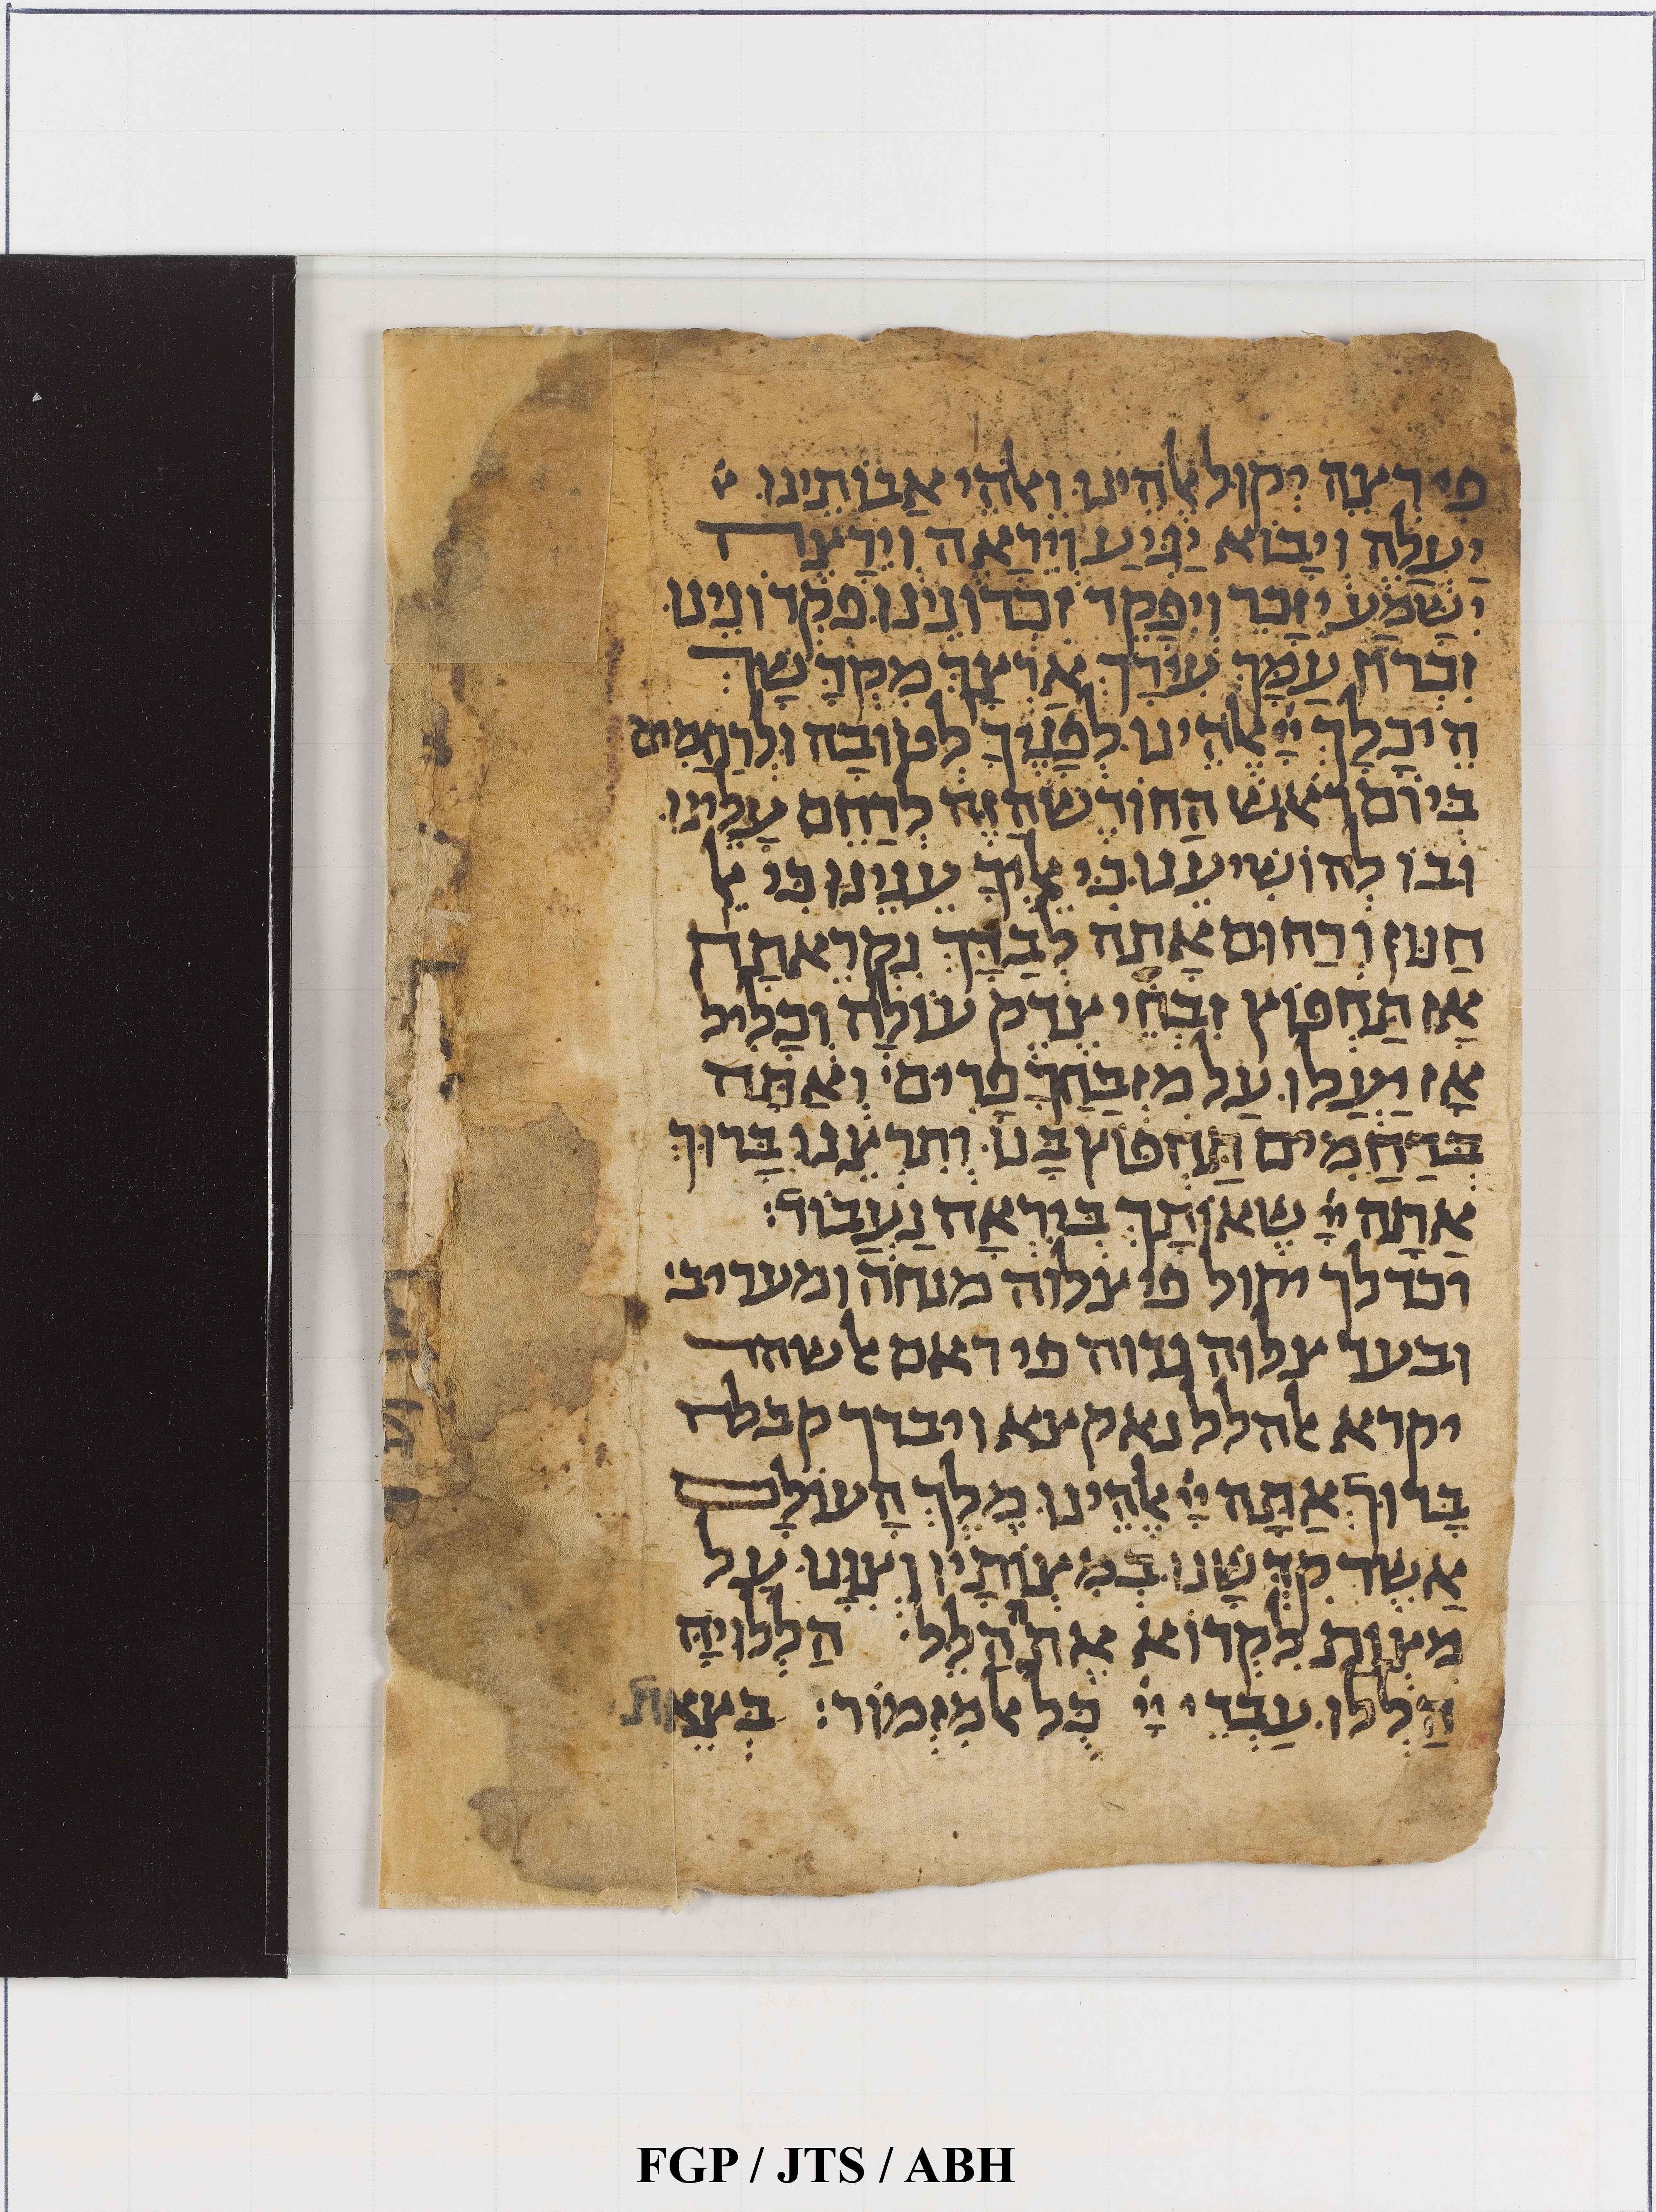 פי רצה יקול אלהינו ואלהי אבותינו
יעלה ויבוא יגיע ויראה וירצה
ישמע יזכר ויפקד זכרונינו פקדונינו
זכרון עמך עירך ארצך מקדשך
היכלך ייי אלהינו לפניך לטובה ולרחמים
ביום ראש החודש הזה לרחם עלינו
ובו להושיענו כי אליך עינינו כי אל
חנון ורחום אתה לבדך נקראתה
אז תחפוץ זבחי צדק עולה וכליל
אז יעלו על מזבחך פרים ואתה
ברחמים תחפוץ בנו ותרצנו ברוך
אתה ייי שאותך ביראה נעבוד:
וכדלך יקול פי צלוה מנחה ומעריבי
ובעד צלוה גדוה פי ראס אלשהר
יקרא אלהלל נאקצא ויברך קבלה
ברוך אתה ייי אלהינו מלך העולם
אשר קדשנו במצותיו וצונו על
מצות לקרוא את ההלל: הללויה
הללו עבדי ייי כל אלמזמור: בצאת
FGP / JTS / ABH